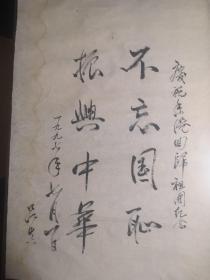 慶祝香港回歸祖國紀念
不忘国恥
振興中華
一九九七年七月一日